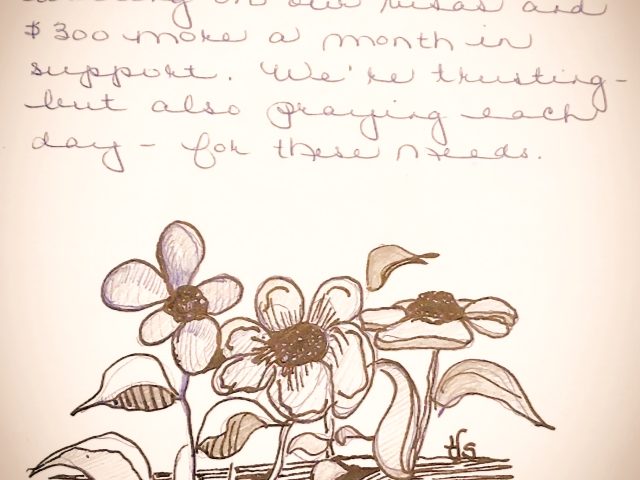 on our visas and
$300 more a month in
support. We're trusting -
but also praying each
day - for these needs.
HS